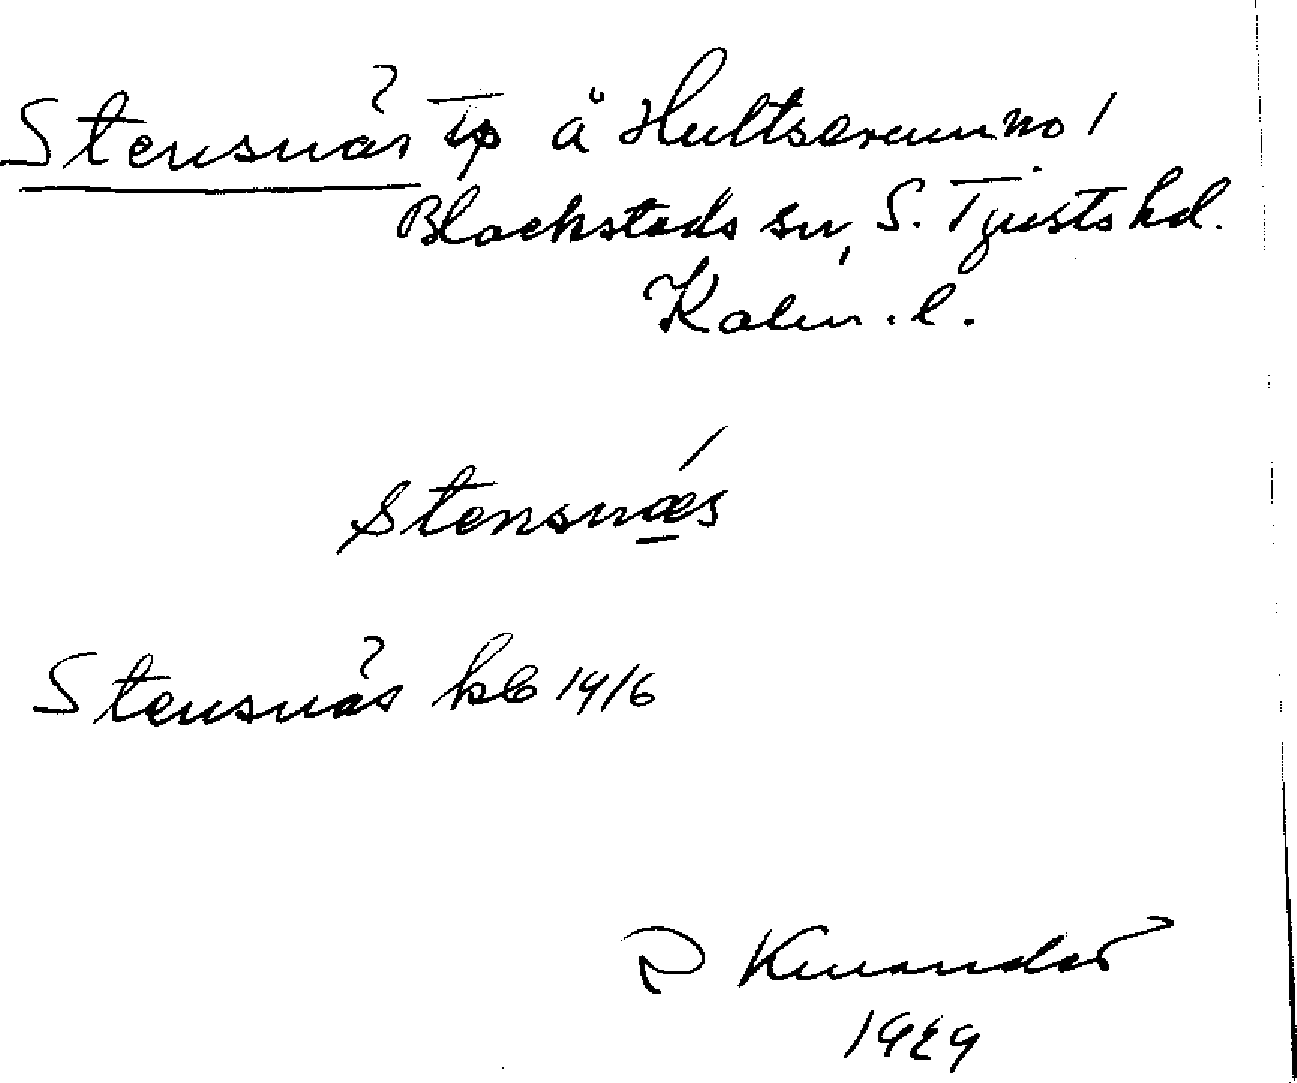 Stensnäs Tp å Hultserum no 1
Blackstads sn, S. Tjusts hd.
Kalm. l.
Stensnæs
Stensnäs kb 14/6
R Kinander
1929